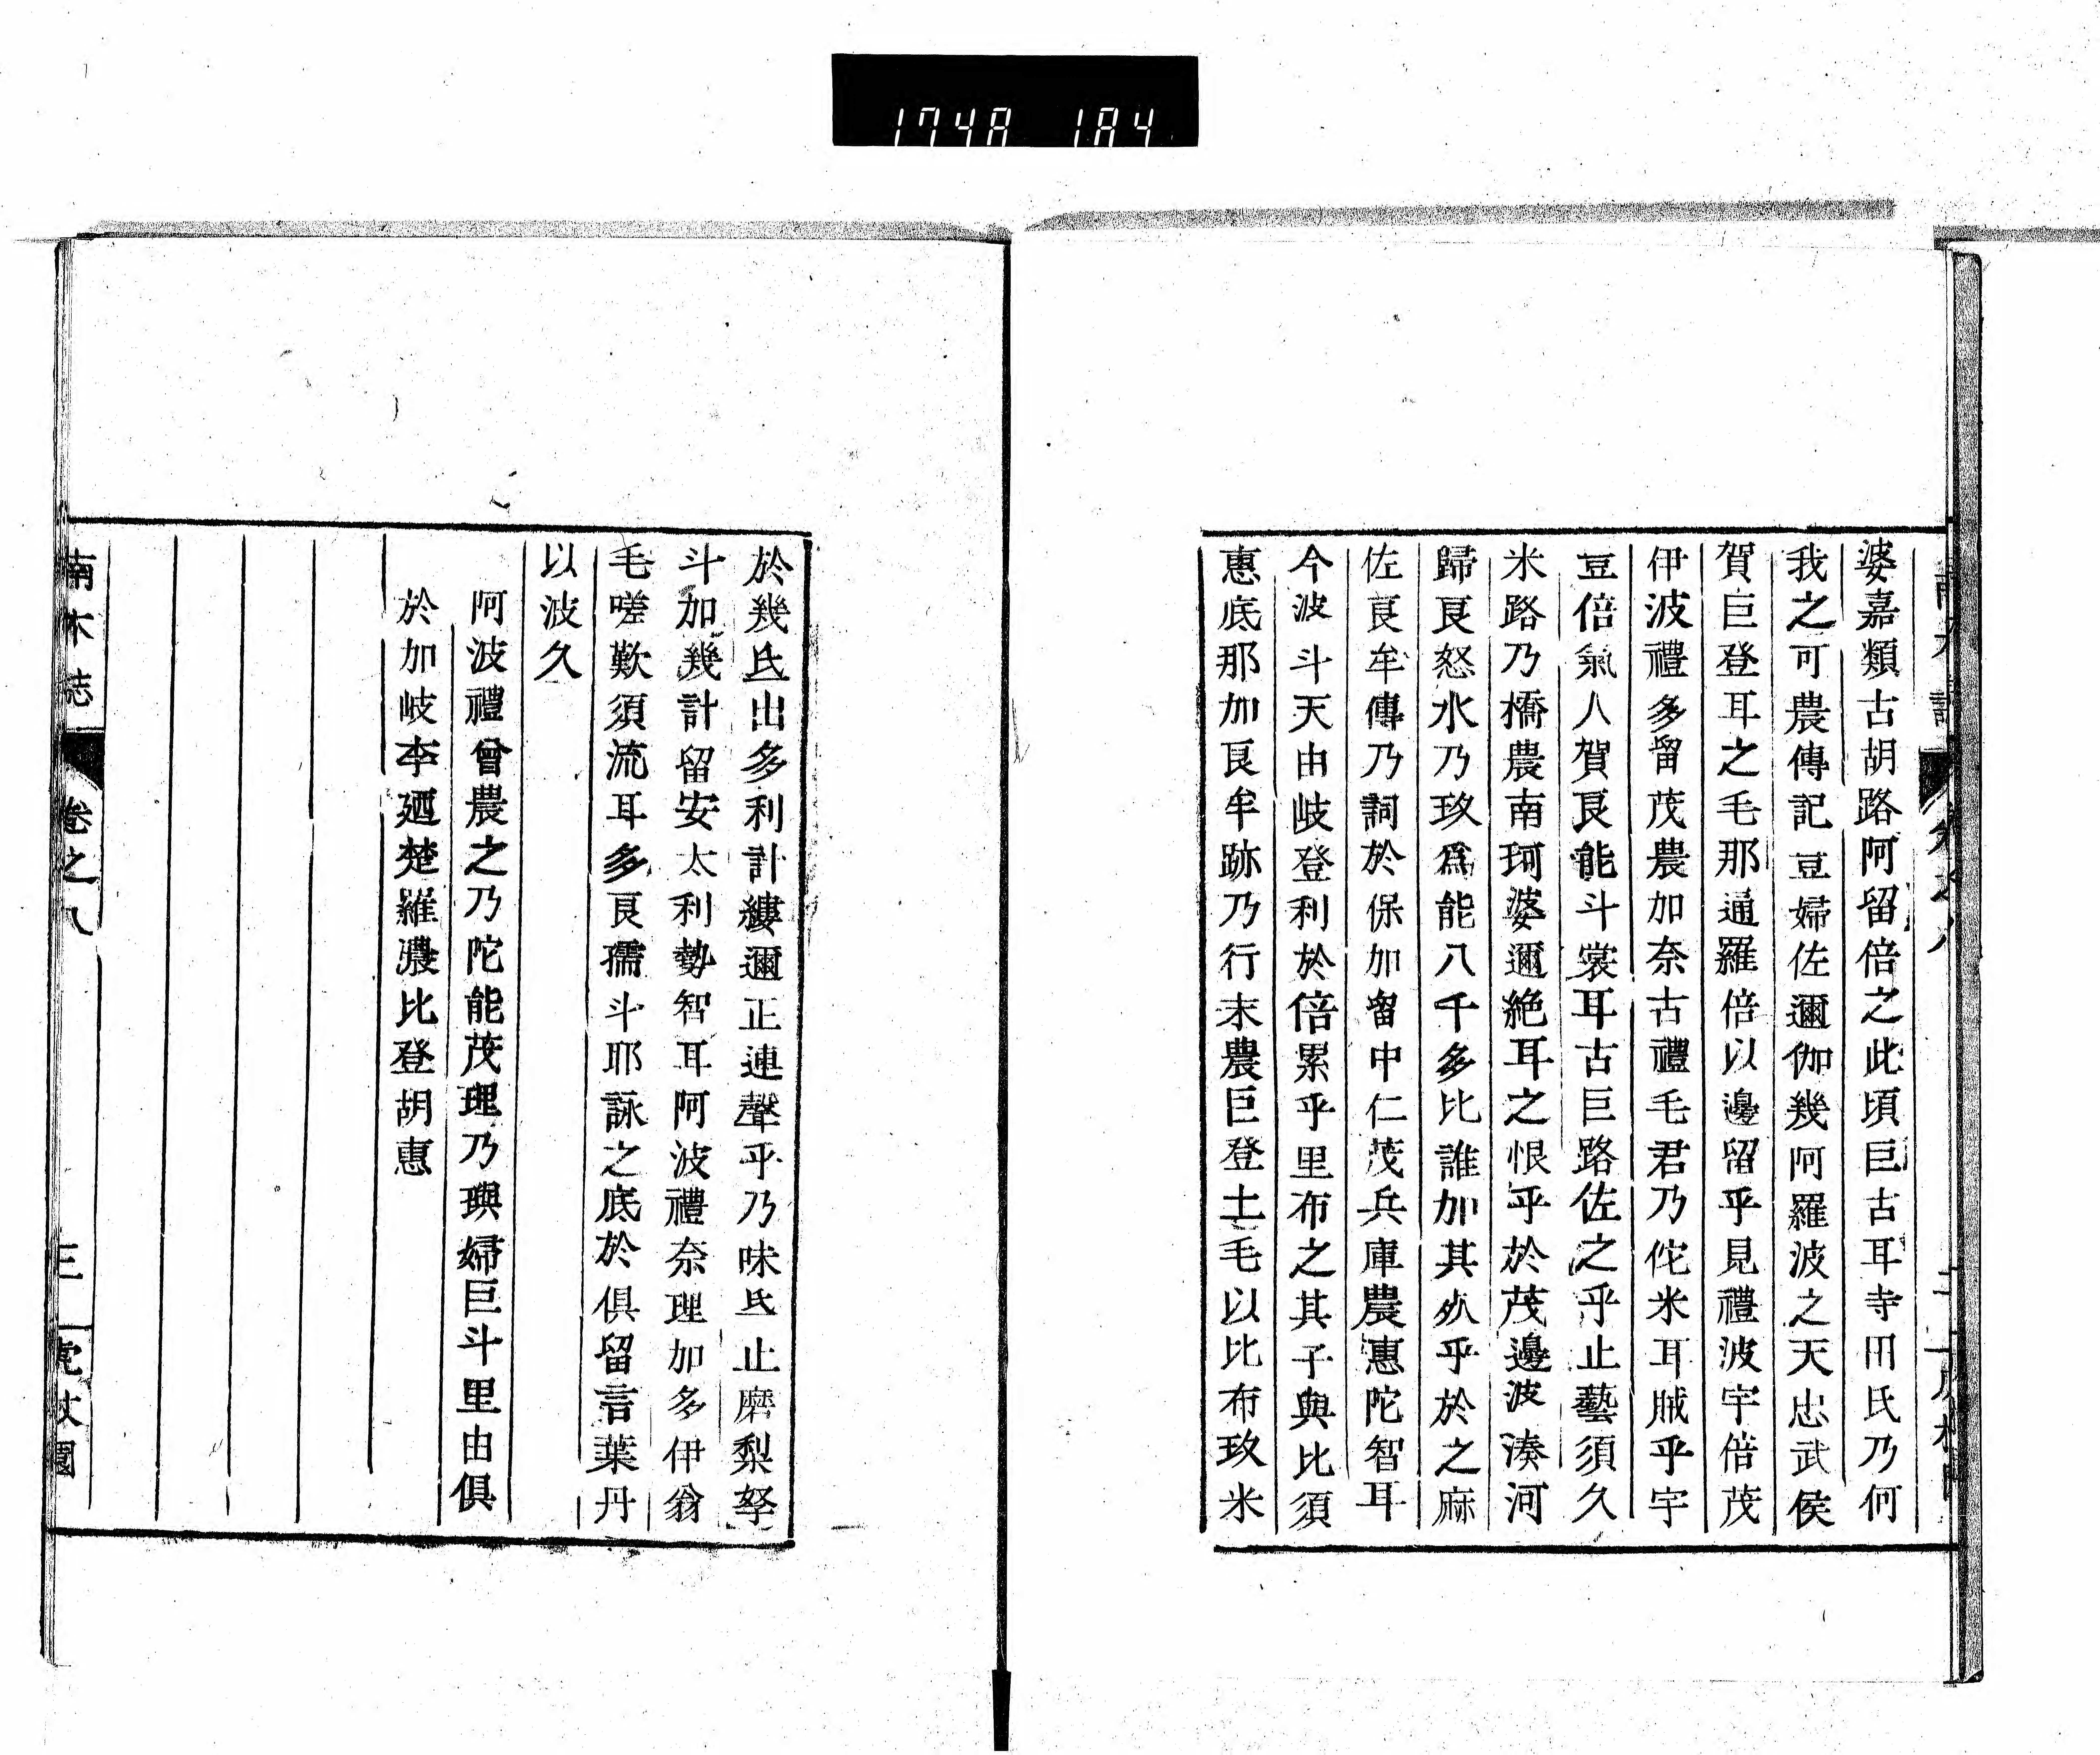 1748 184
婆嘉類古胡路阿留倍之此頃巨古耳寺田氏乃何
我之可農傳記豆婦佐邇伽幾阿羅波之天忠武侯
賀巨登耳之毛那通羅倍以邊留乎見禮波宇倍茂
伊波禮多留茂農加奈古禮毛君乃佗米耳賊乎宇
豆倍氣人賀良能斗裳耳古巨路佐之乎止藝須久
米路乃橋農南珂婆邇絶耳之恨乎於茂邊波湊河
歸良怒水乃玖爲能八千多比誰加其乆乎於之麻
佐良牟傳乃詞於保加留中仁茂兵庫農惠陀智耳
今波斗天由岐登利於倍累乎里布之其子與比須
惠底那加良牟跡乃行末農巨登土毛以比布玖米
於幾氐出多利計縷邇正連聲乎乃味氐止磨梨拏
斗加幾計留安太利勢智耳阿波禮奈理加多伊翁
毛嗟歎須流耳多良孺斗耶詠之底於俱留言葉丹
以波久
阿波禮曾農之乃陀能茂理乃璵婦巨斗里由俱
於加岐李廼楚羅濃比登胡惠
南木志 卷之八 三